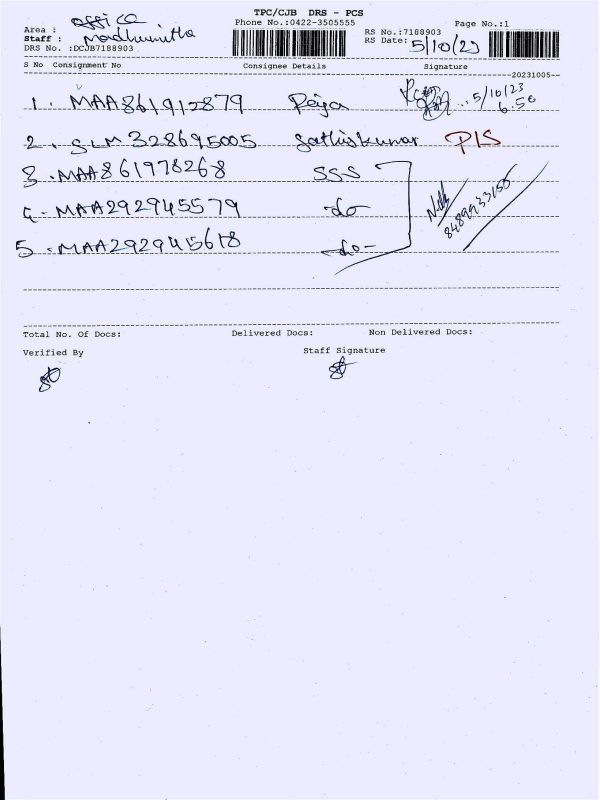 TPC/CJB DRS - PCS
Area : office Phone No.:0422-3505555 Page No.:1
Staff : Madhumitha RS No.:7188903
DRS No. :DCJB7188903 RS Date: 5/10/23
S No Consignment No Consignee Details Signature
--20231005--
1. MAA861912879 Raja 5/10/23
6.50
2. SLM328695005 Sathiskumar PIS
3. MAA861978268 SSS
4. MAA292945579 -do- 8489933155
5. MAA292945618 -do-
Total No. Of Docs: Delivered Docs: Non Delivered Docs:
Verified By Staff Signature